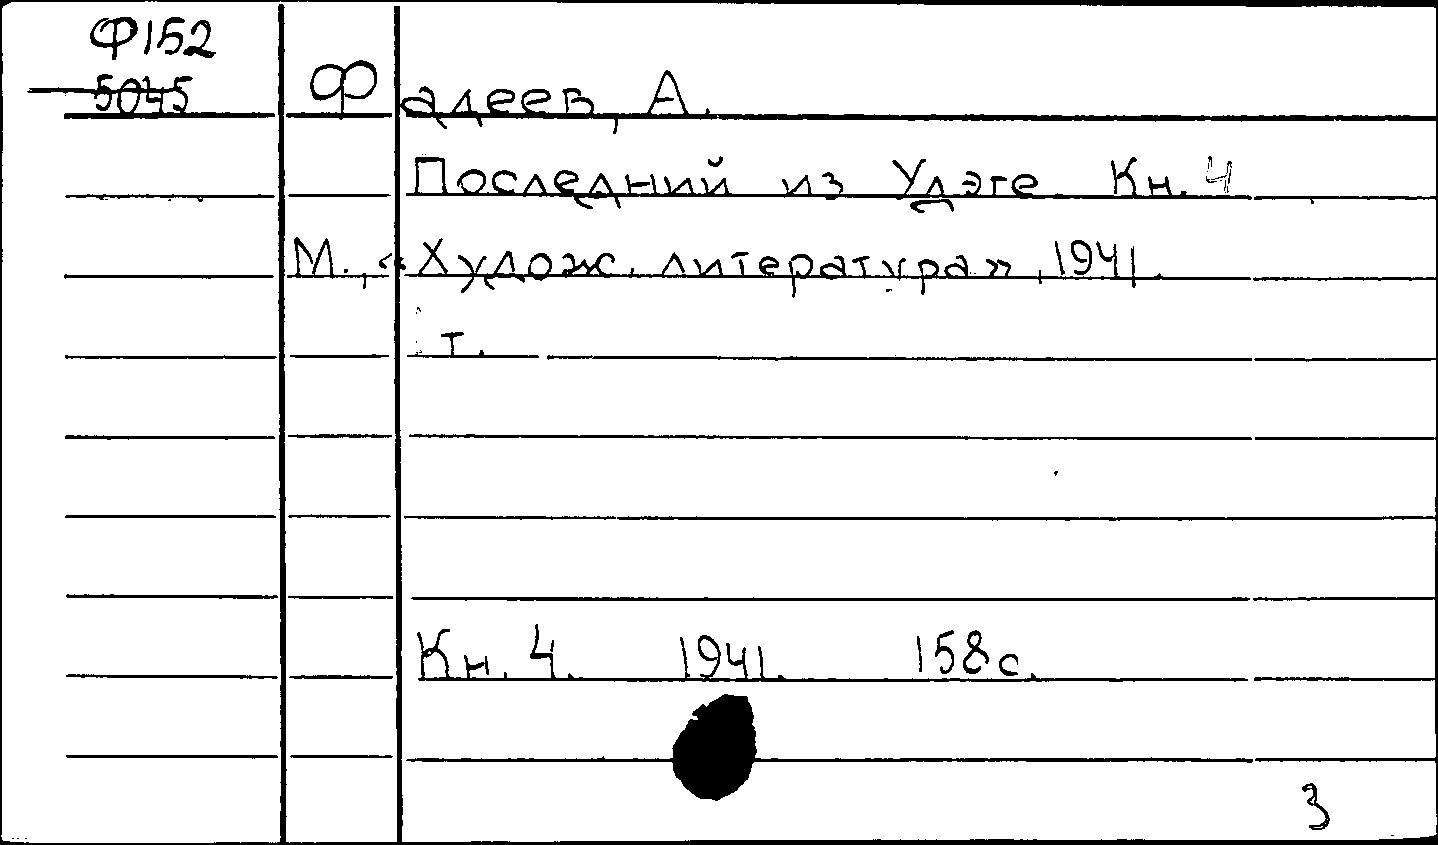 Ф152
5045
Фадеев, А.
Последний из Удэге. Кн. 4
М., «Худож. литература», 1941.
т.
Кн. 4. 1941. 158с.
3